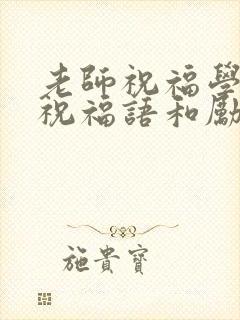 老師祝福學
祝福語和勵
施貴寶